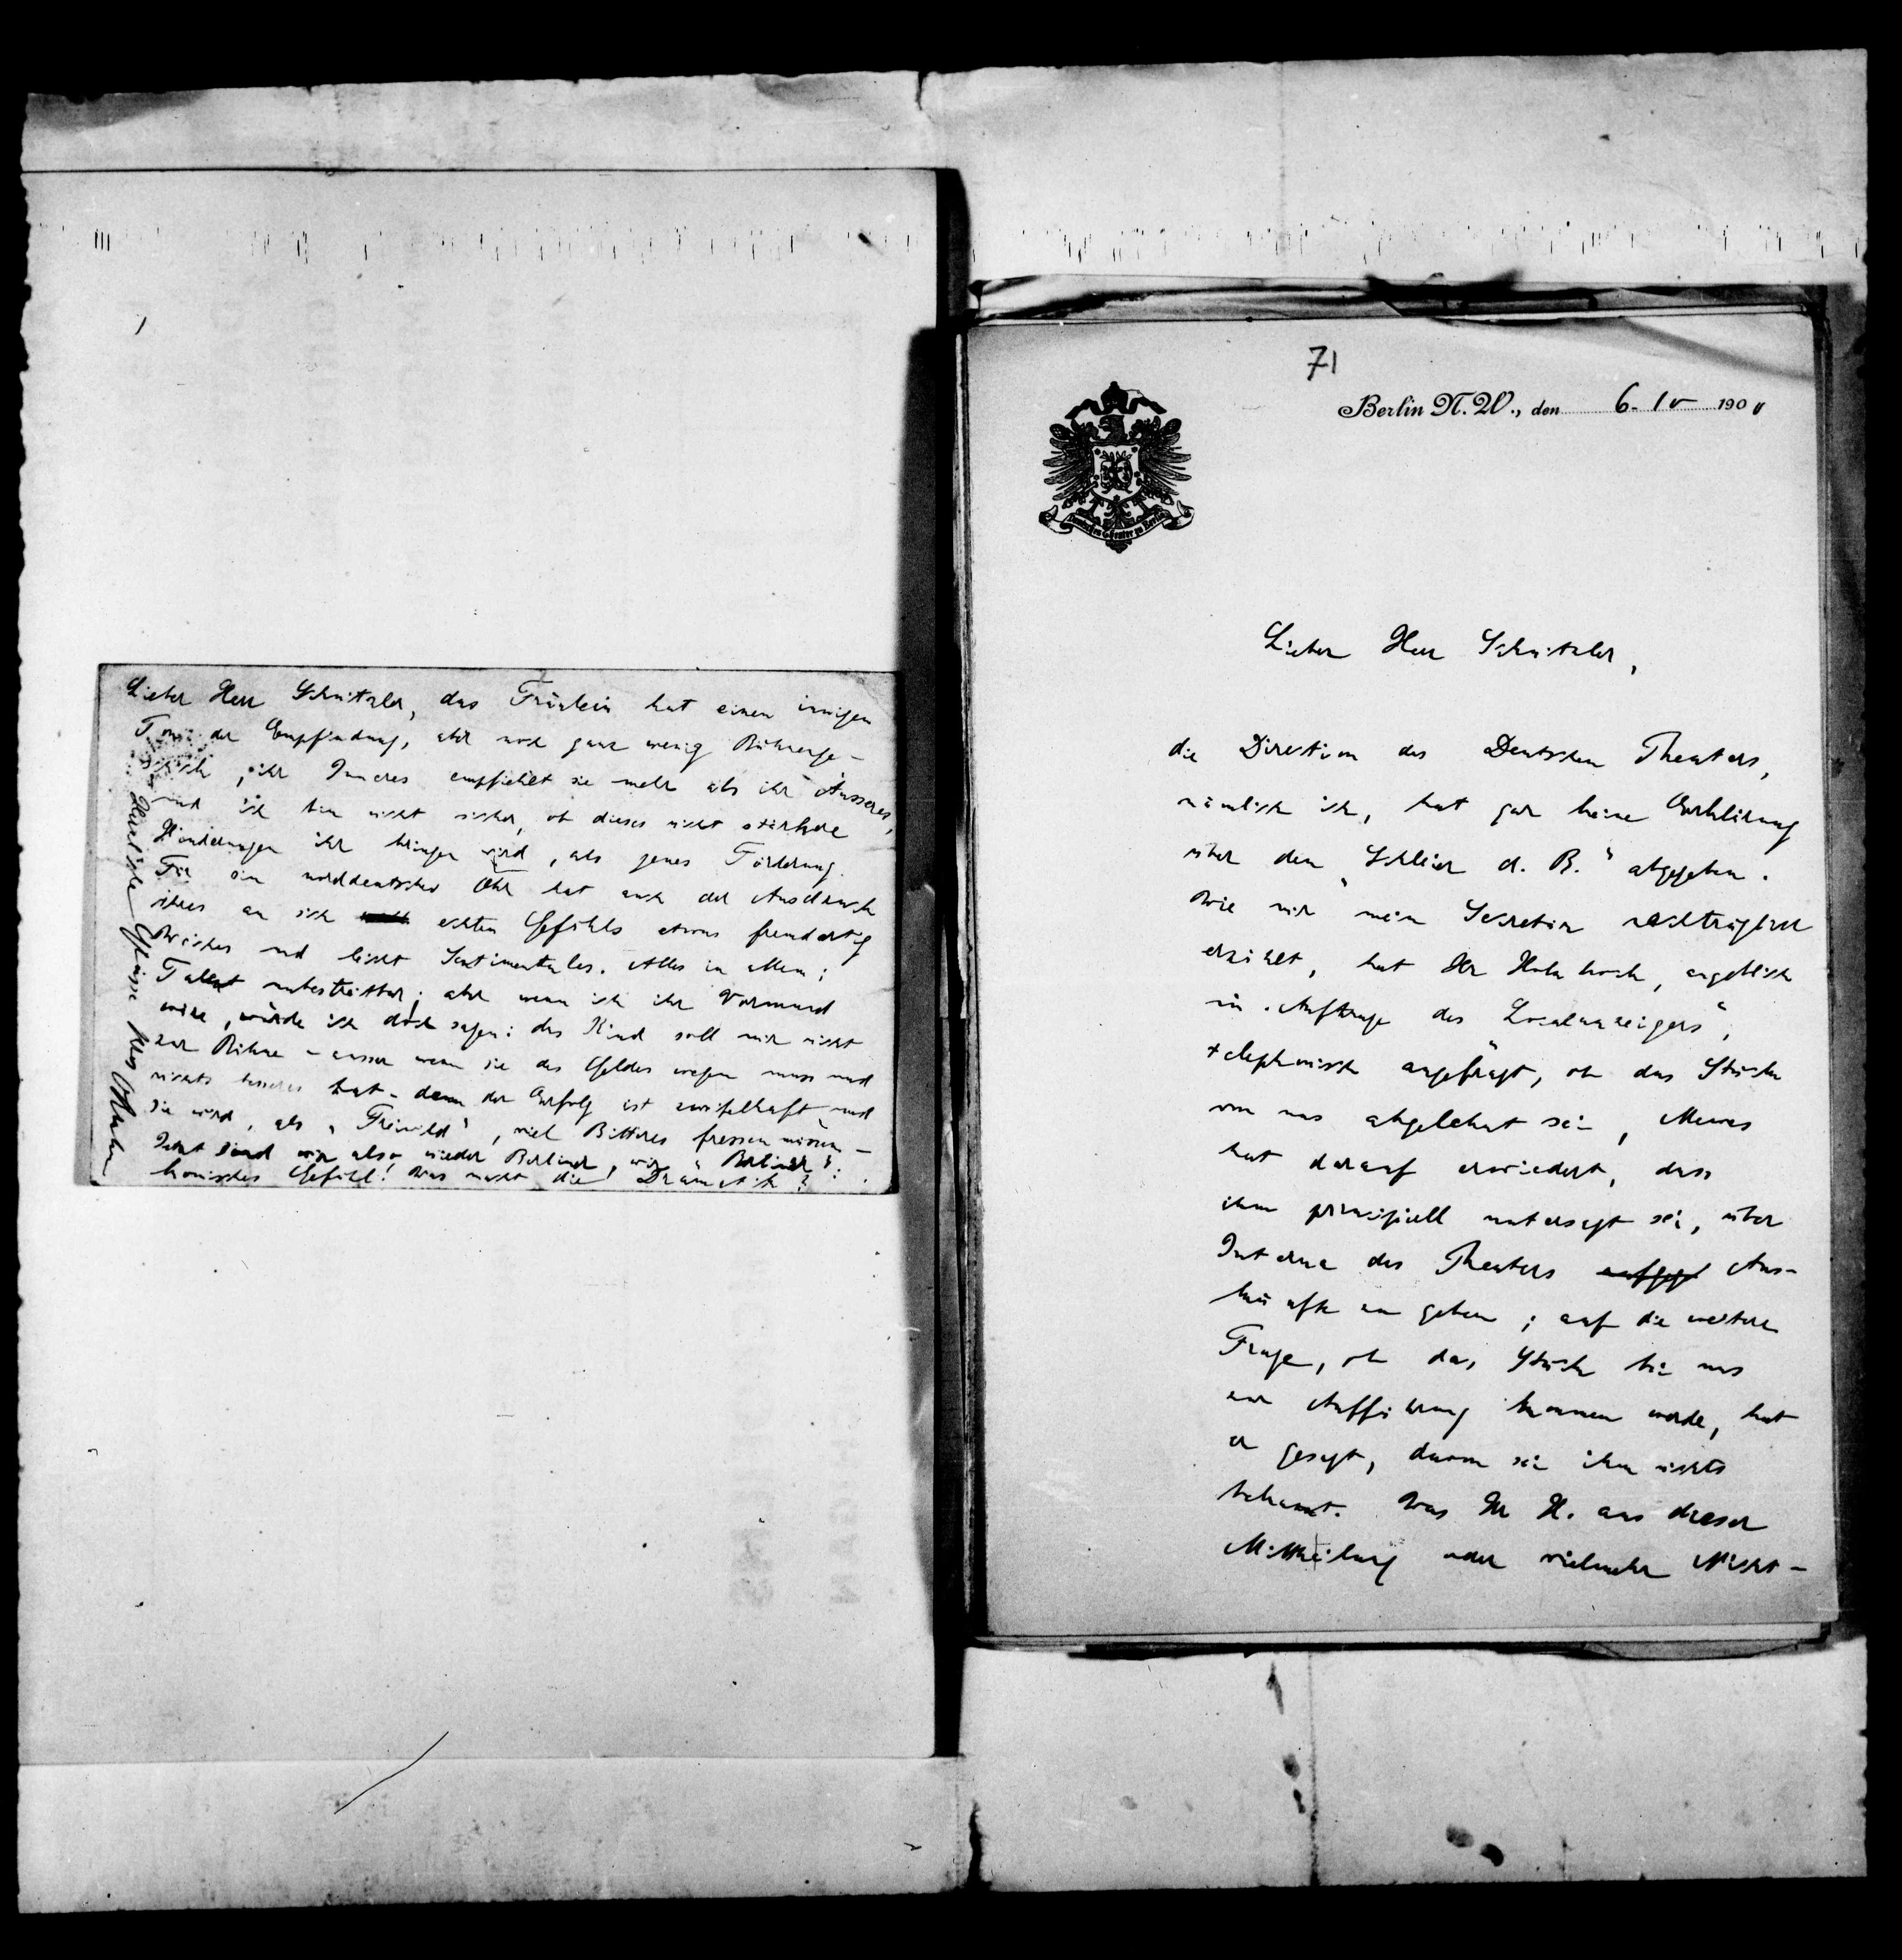 Lieber Herr Schnitzler, das Fräulein hat einen innigen
Ton der Empfindung, aber noch ganz wenig Bühnenge-
schick, ihr Inneres empfiehlt sie mehr als ihr Äusseres,
und ich bin nicht sicher, ob dieses nicht stärkere
Hinderungen ihr bringen wird, als jenes Förderung.
Für ein norddeutsches Ohr hat auch der Ausdruck
ihres an sich echten Gefühls etwas fremdartig
Weiches und leicht Sentimentales. Alles in Allem:
Talent unbestreitbar; aber wenn ich ihr Vormund
wäre, würde ich doch sagen: das Kind soll mir nicht
zur Bühne – ausser wenn sie des Geldes wegen muss und
nichts besseres hat – denn der Erfolg ist zweifelhaft und
sie wird, als „Freiwild“, viel Bitteres fressen müssen –
Jetzt sind wir also wieder Berliner, wir „Berliner“:
komisches Gefühl! Was macht die Dramatik?
Herzliche Grüsse Ihres OBrahm
71
Berlin N.W., den 6. 10 1900
Deutsches Theater zu Berlin
Lieber Herr Schnitzler,
die Direction des Deutschen Theaters,
nämlich ich, hat gar keine Erklärung
über den „Schleier d. B.“ abgegeben.
Wie mir mein Secretär nachträglich
erzählt, hat Hr Holzbock, angeblich
im Auftrage des „Localanzeigers“,
telephonisch angefragt, ob das Stück
von uns abgelehnt sei, Mewes
hat darauf erwiedert, dass
ihm principiell untersagt sei, über
Interna des Theaters Aus-
künfte zu geben; auf die weitere
Frage, ob das Stück bei uns
zur Aufführung kommen werde, hat
er gesagt, davon sei ihm nichts
bekannt. Was Hr H. aus dieser
Mittheilung oder vielmehr Nicht-